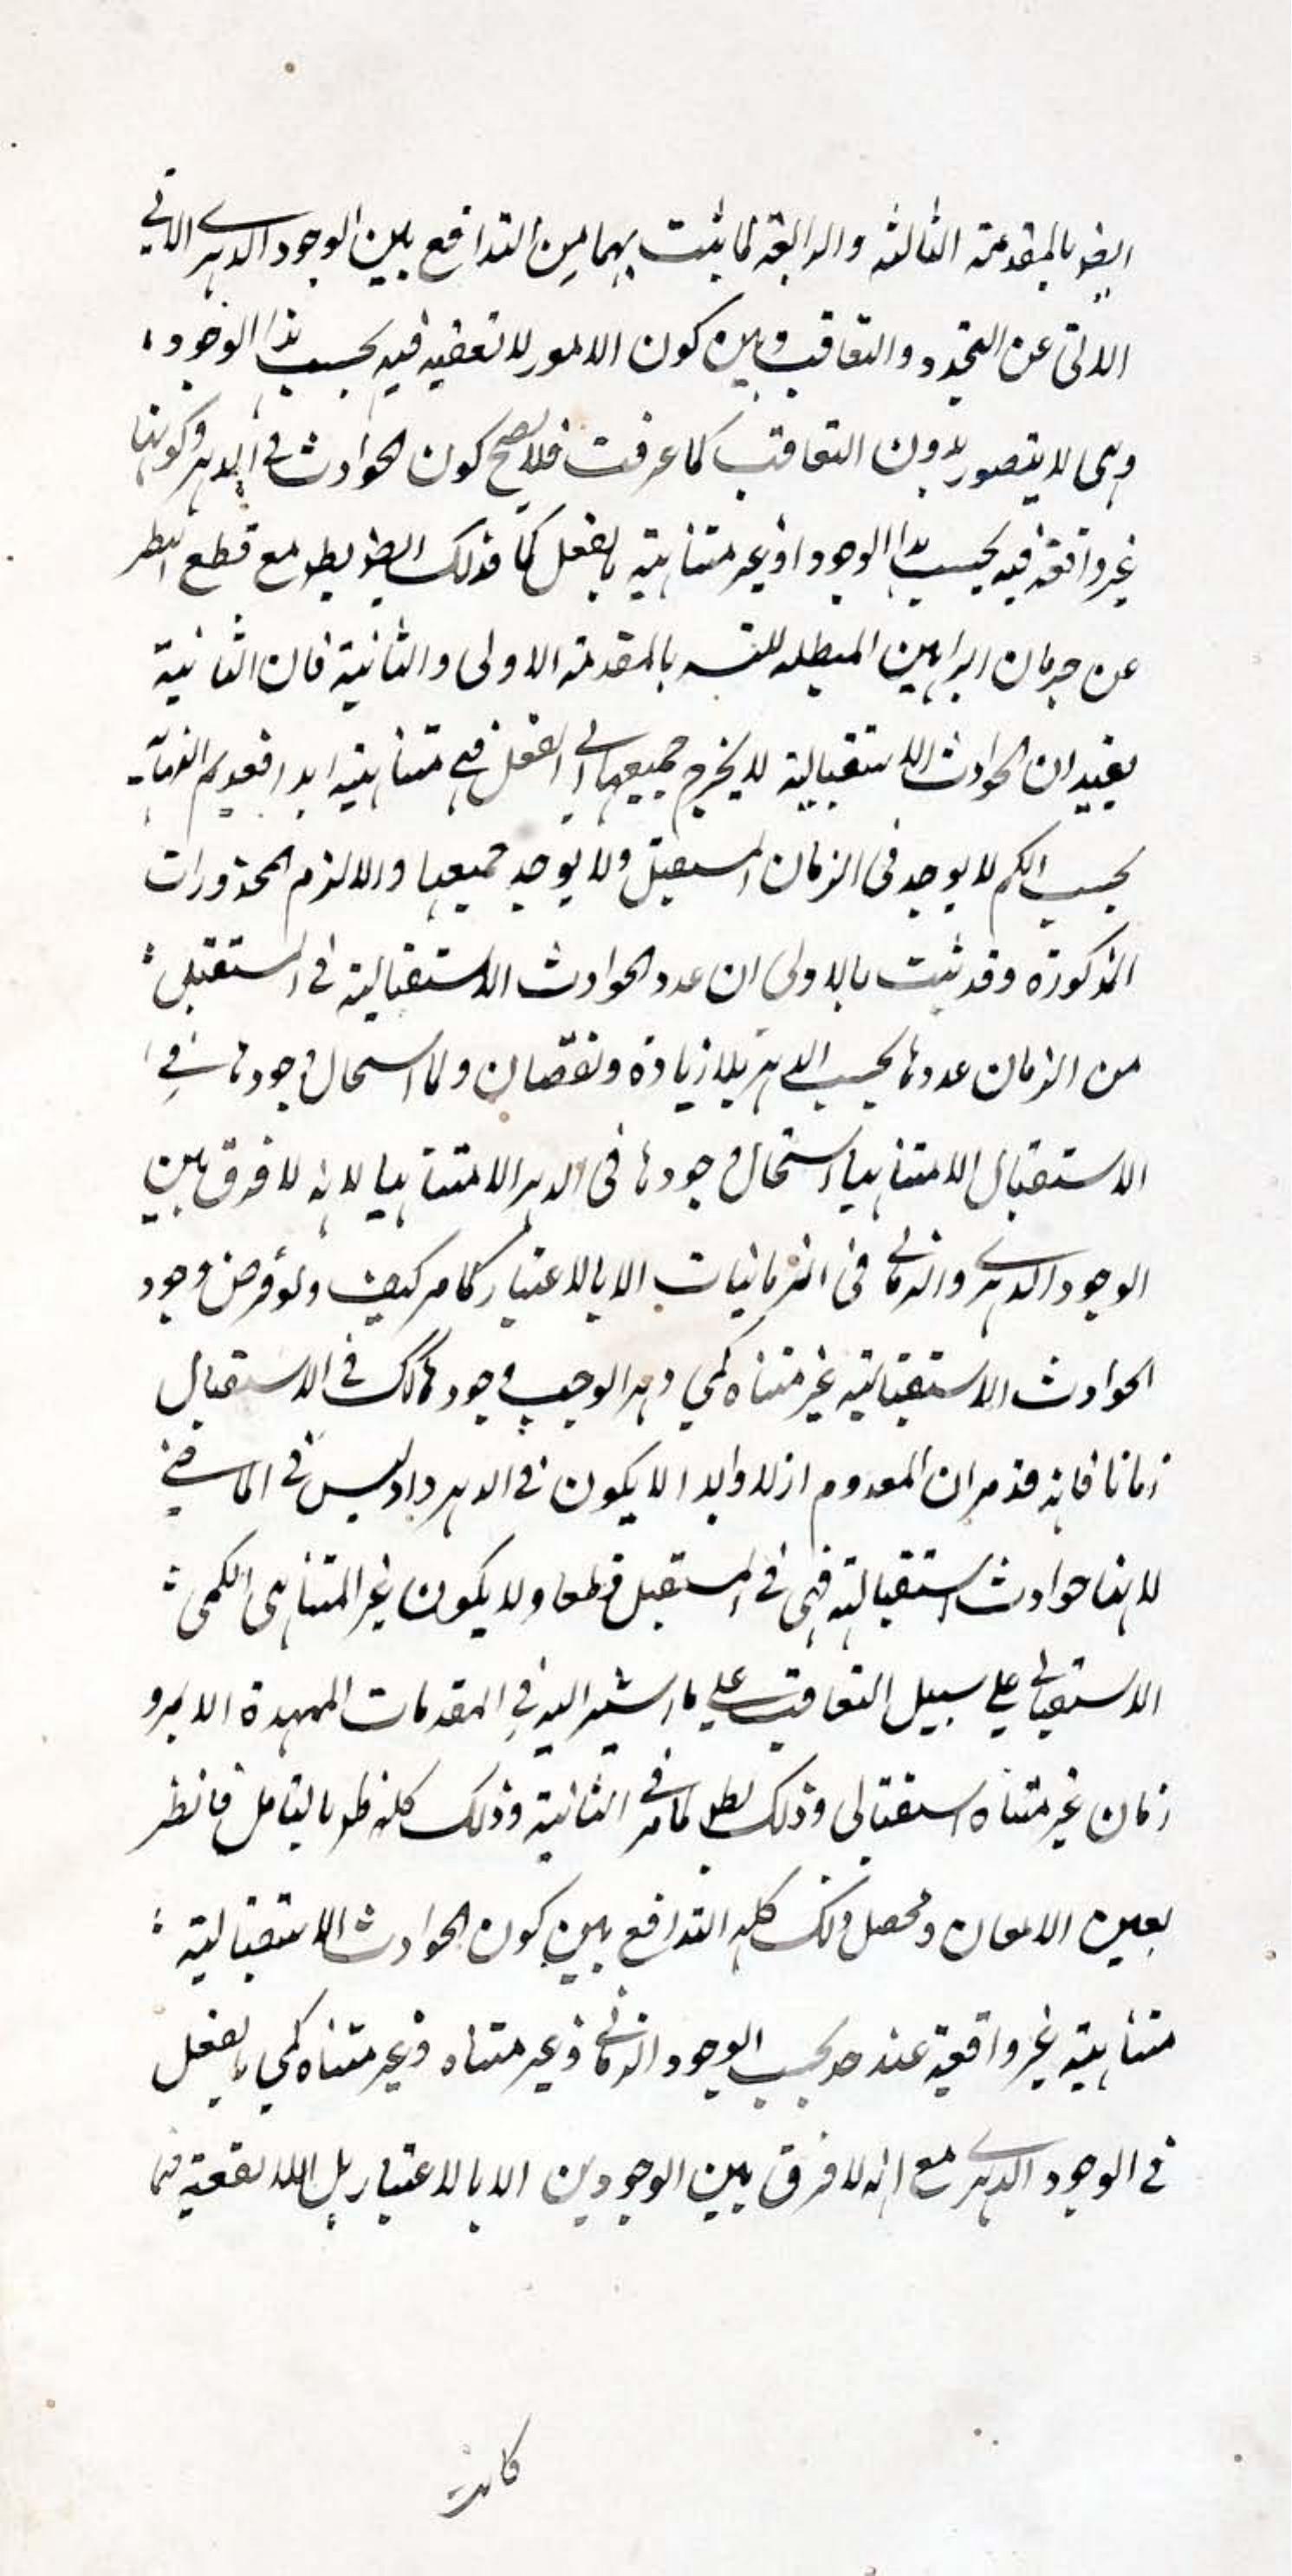 ايضو بالمقدمة الثالثه والرابعة لما يثبت بهما من التدافع بين الوجود الدهرى الآبى
الابى عن التجدد والتعاقب وبين كون الامور لا تقفيه فيه بحسب هذا الوجود
وهى لا يتصور بدون التعاقب كما عرفت فلا يصح كون الحوادث فى الدهر وكونها
غير واقفة فيه بحسب هذا الوجود او غير متناهية بالفعل كما فذلك ايضو بط مع قطع النظر
عن جريان البراهين المبطله للتسـ بالمقدمة الاولى والثانية فان الثانية
يفيد ان الحوادث الاستقبالية لا يخرج جميعها الى الفعل فهى متناهية ابدا فعديم النهاية
بحسب الكم لا يوجد فى الزمان المستقبل ولا يوجد جميعها والا لزم المحذورات
المذكورة وقد ثبت بالاولى ان عدد الحوادث الاستقبالية فى المستقبل
من الزمان عددها بحسب الدهر بلا زيادة ونقصان ولما استحال وجودها فى
الاستقبال لا متناهيا استحال وجودها فى الدهر لا متناهيا لانه لا فرق بين
الوجود الدهرى والزمانى فى الزمانيات الا بالاعتبار كما مر كيف ولو فرض وجود
الحوادث الاستقبالية غير متناه كمى دهرا لوجب وجودها كك فى الاستقبال
زمانا فانه قد مر ان المعدوم ازلا وابدا لا يكون فى الدهر واذ ليس فى الماضى
لانها حوادث استقبالية فهى فى المستقبل قطعا ولا يكون غير المتناهى الكمى
الاستقبالى على سبيل التعاقب على ما اشير اليه فى المقدمات الممهدة الا بمرو
زمان غير متناه استقبالى وذلك بط لما مر فى الثانية وذلك كله ظ بالتامل فانظر
بعين الامعان ومحصل ذلك كله التدافع بين كون الحوادث الاستقبالية
متناهية غير واقفة عند حد بحسب الوجود الزمانى وغير متناه وغير متناه كمى بالفعل
فى الوجود الدهرى مع انه لا فرق بين الوجودين الا بالاعتبار بل اللا تقفية
كانت